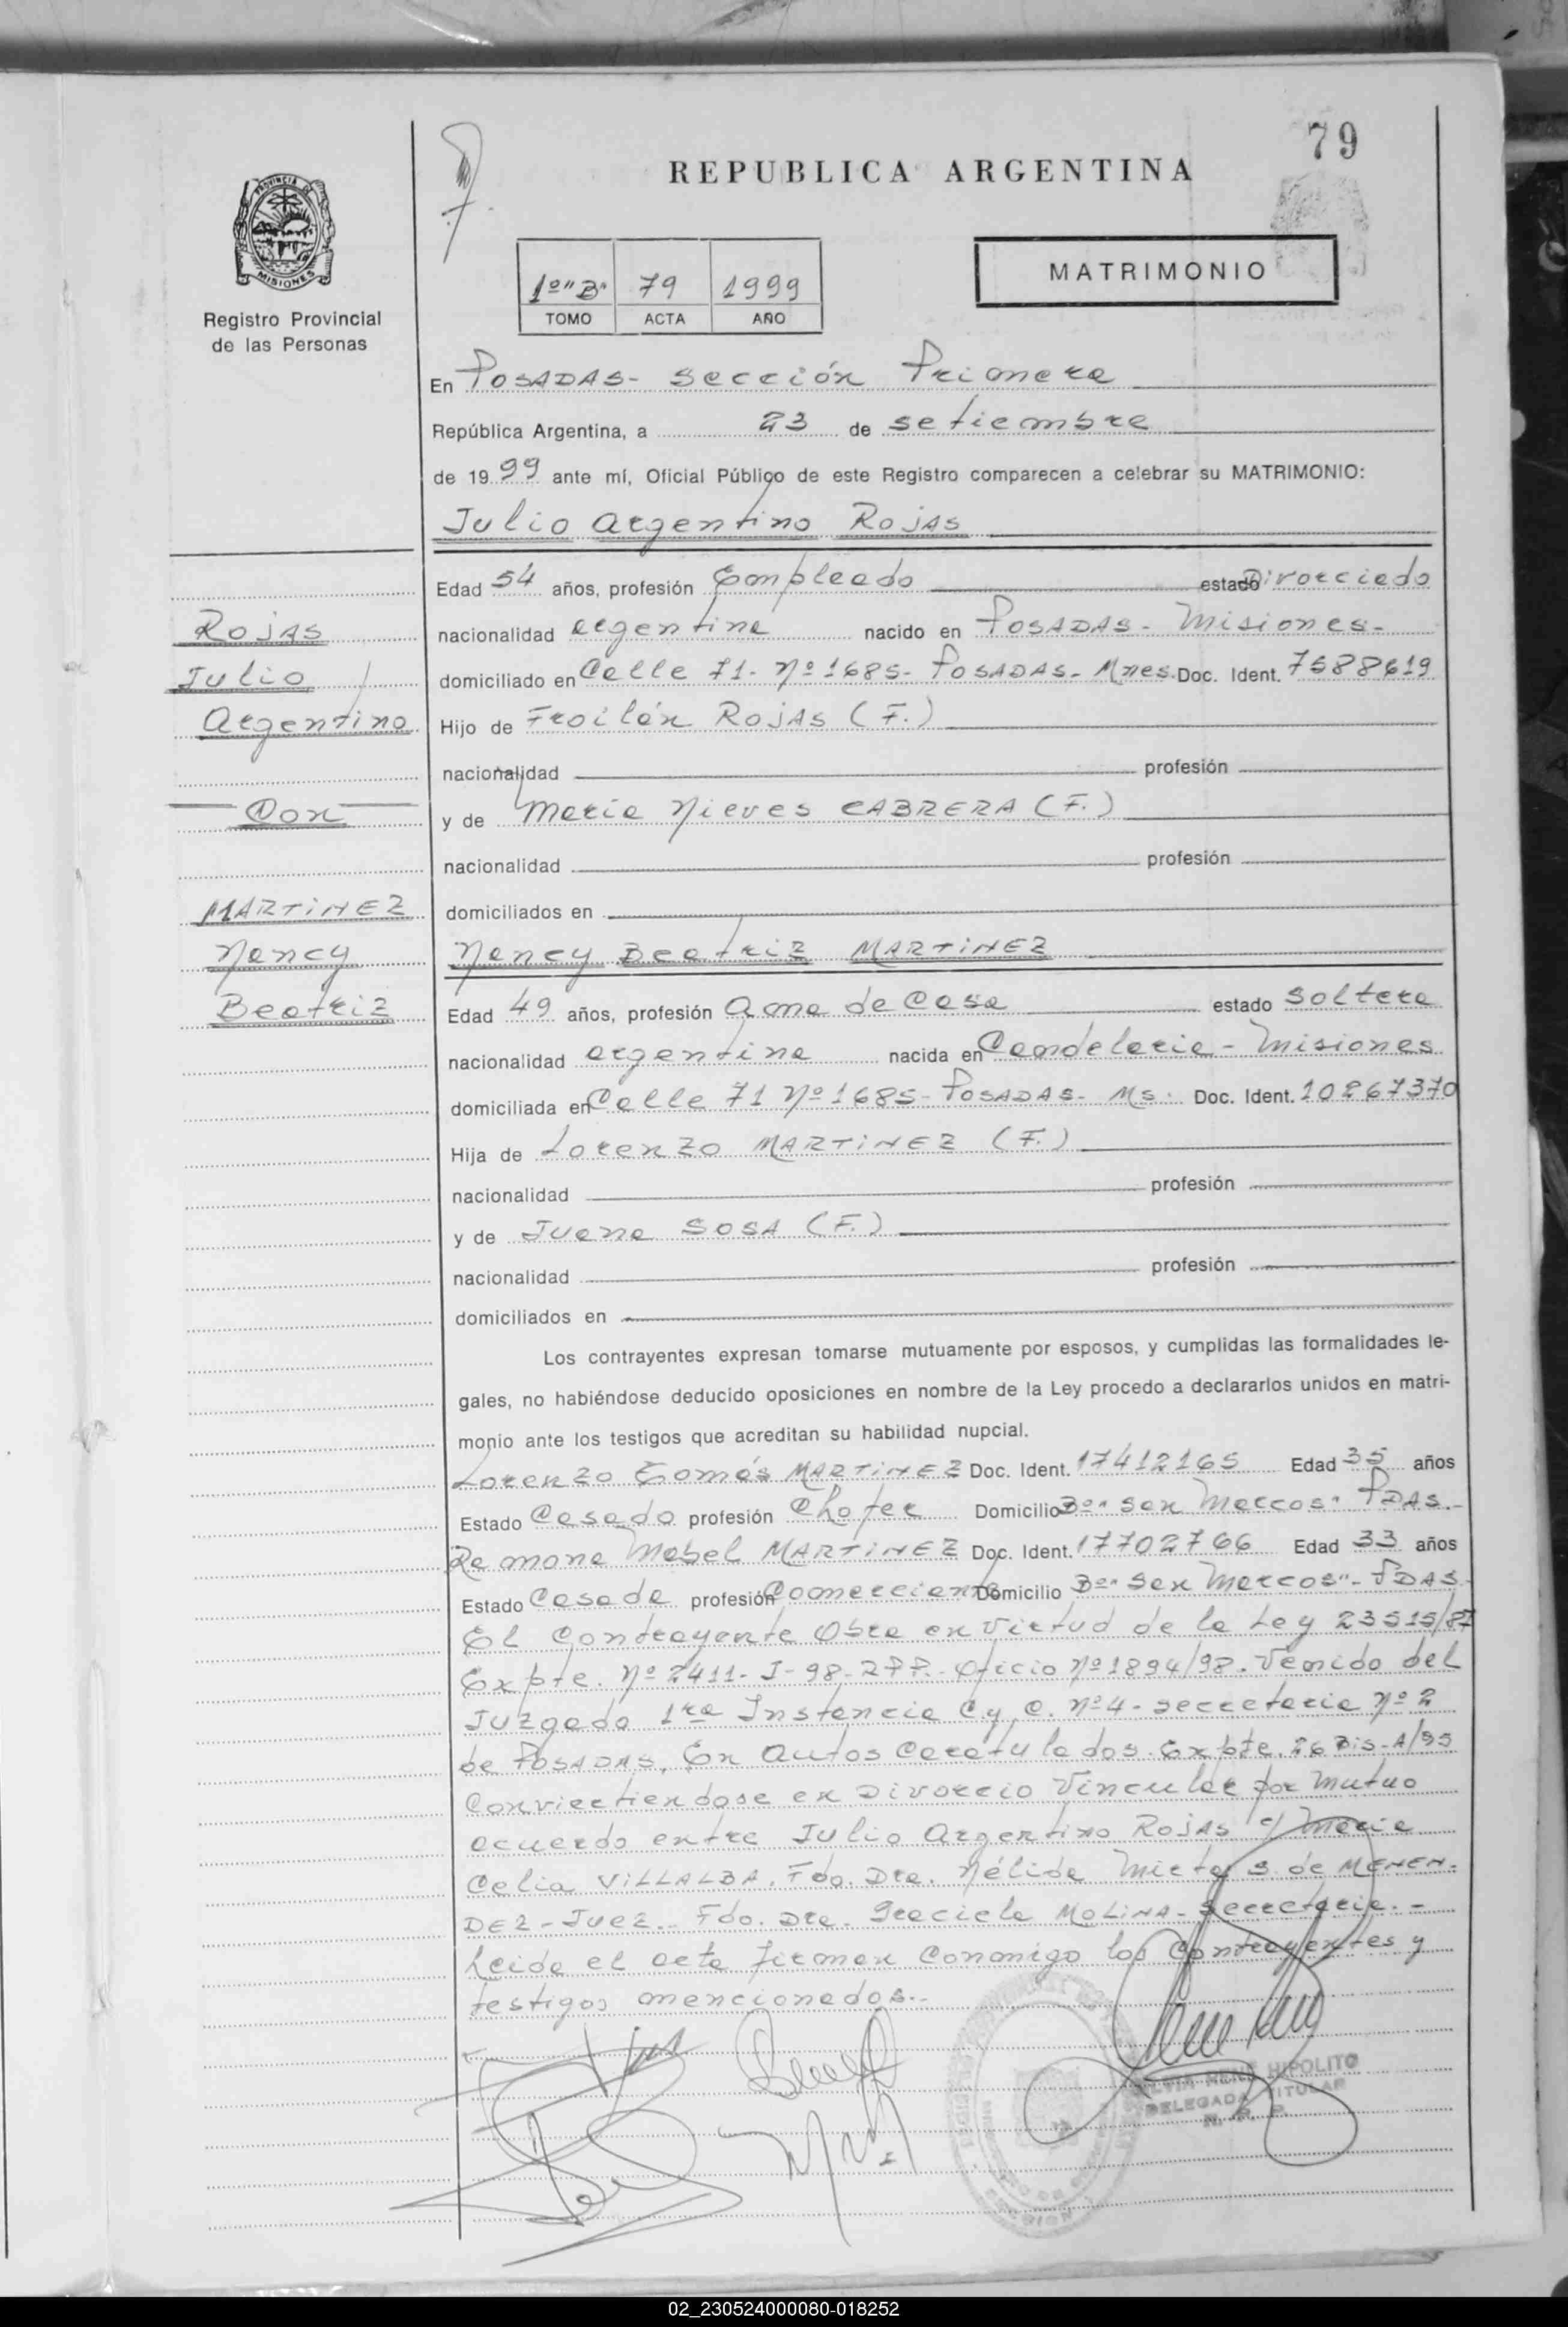 79
REPUBLICA ARGENTINA
PROVINCIA DE
MISIONES
Registro Provincial
de las Personas
1º "B" 79 1999
TOMO ACTA AÑO
MATRIMONIO
En POSADAS- Sección Primera
República Argentina, a 23 de setiembre
de 1999 ante mí, Oficial Público de este Registro comparecen a celebrar su MATRIMONIO:
Julio Argentino ROJAS
Edad 54 años, profesión Empleado estado Divorciado
nacionalidad argentina nacido en POSADAS- Misiones-
domiciliado en Calle 71- Nº 1685- POSADAS- Mnes. Doc. Ident. 7588619
Hijo de Froilán ROJAS (F.)
nacionalidad profesión
y de María Nieves CABRERA (F.)
nacionalidad profesión
domiciliados en
Nancy Beatriz MARTINEZ
Edad 49 años, profesión Ama de Casa estado Soltera
nacionalidad argentina nacida en Candelaria - Misiones
domiciliada en Calle 71 Nº 1685- POSADAS- Ms. Doc. Ident. 10867370
Hija de Lorenzo MARTINEZ (F.)
nacionalidad profesión
y de Juana SOSA (F.)
nacionalidad profesión
domiciliados en
ROJAS
Julio
Argentino
Con
MARTINEZ
Nancy
Beatriz
Los contrayentes expresan tomarse mutuamente por esposos, y cumplidas las formalidades le-
gales, no habiéndose deducido oposiciones en nombre de la Ley procedo a declararlos unidos en matri-
monio ante los testigos que acreditan su habilidad nupcial.
Lorenzo Tomás MARTINEZ Doc. Ident. 17412165 Edad 35 años
Estado Casado profesión Chofer Domicilio Bº "San Marcos" PDAS.-
Ramona Mabel MARTINEZ Doc. Ident. 17702766 Edad 33 años
Estado Casada profesión Comerciante Domicilio Bº "San Marcos"- PDAS
El Contrayente Obra en Virtud de la Ley 23515/87
Expte. Nº 2411- J- 98- RPP.- Oficio Nº 1894/98. Venido del
Juzgado 1ra Instancia C.y C. Nº4- Secretaria Nº 2
de POSADAS, En Autos Caratulados. Expte. 26 Bis-A/95
Conviertiendose en Divorcio Vincular por Mutuo
acuerdo entre Julio Argentino ROJAS c/ María
Celia VILLALBA. Fdo. Dra. Nélida Mirta S. de MENEN-
DEZ - Juez.- Fdo. Dra. Graciela MOLINA- Secretaria.-
Leida el acta firman Conmigo los Contrayentes y
testigos mencionados.-
SILVIA RENE HIPOLITO
DELEGADA TITULAR
R. P. P.
02_230524000080-018252